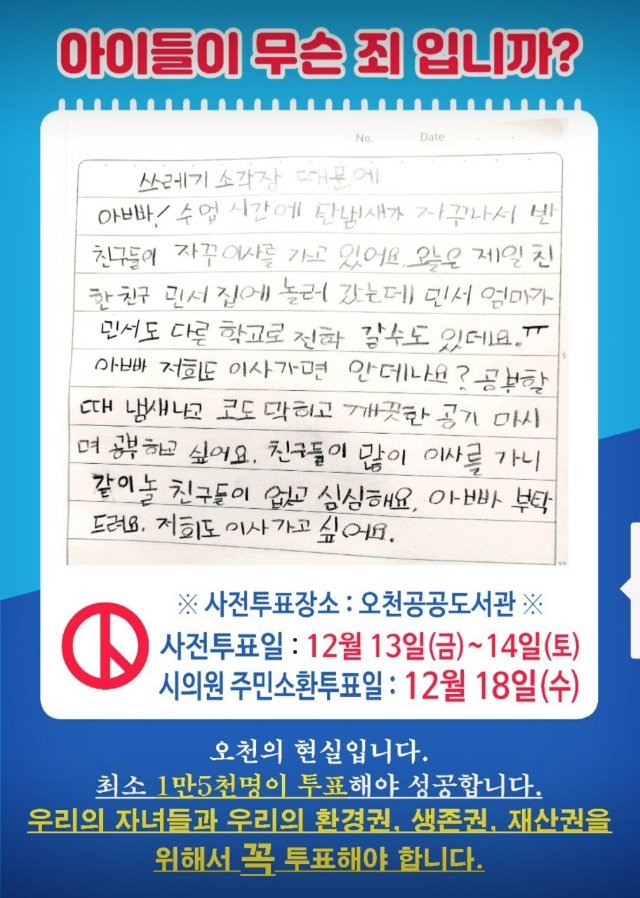 아이들이 무슨 죄 입니까?
No. Date
쓰레기 소각장 때문에
아빠! 수업 시간에 탄냄새가 자꾸나서 반
친구들이 자꾸 이사를 가고 있어요. 오늘은 제일 친
한 친구 민서 집에 놀러 갔는데 민서 엄마가
민서도 다른 학교로 전화 갈수도 있데요.ㅠ
아빠 저희도 이사가면 안데나요? 공부할
때 냄새나고 코도 막히고 깨끗한 공기 마시
며 공부하고 싶어요. 친구들이 많이 이사를 가니
같이 놀 친구들이 없고 심심해요. 아빠 부탁
드려요. 저희도 이사가고 싶어요.
※ 사전투표장소 : 오천공공도서관 ※
사전투표일 : 12월 13일(금)~14일(토)
시의원 주민소환투표일 : 12월 18일(수)
오천의 현실입니다.
최소 1만5천명이 투표해야 성공합니다.
우리의 자녀들과 우리의 환경권, 생존권, 재산권을
위해서 꼭 투표해야 합니다.